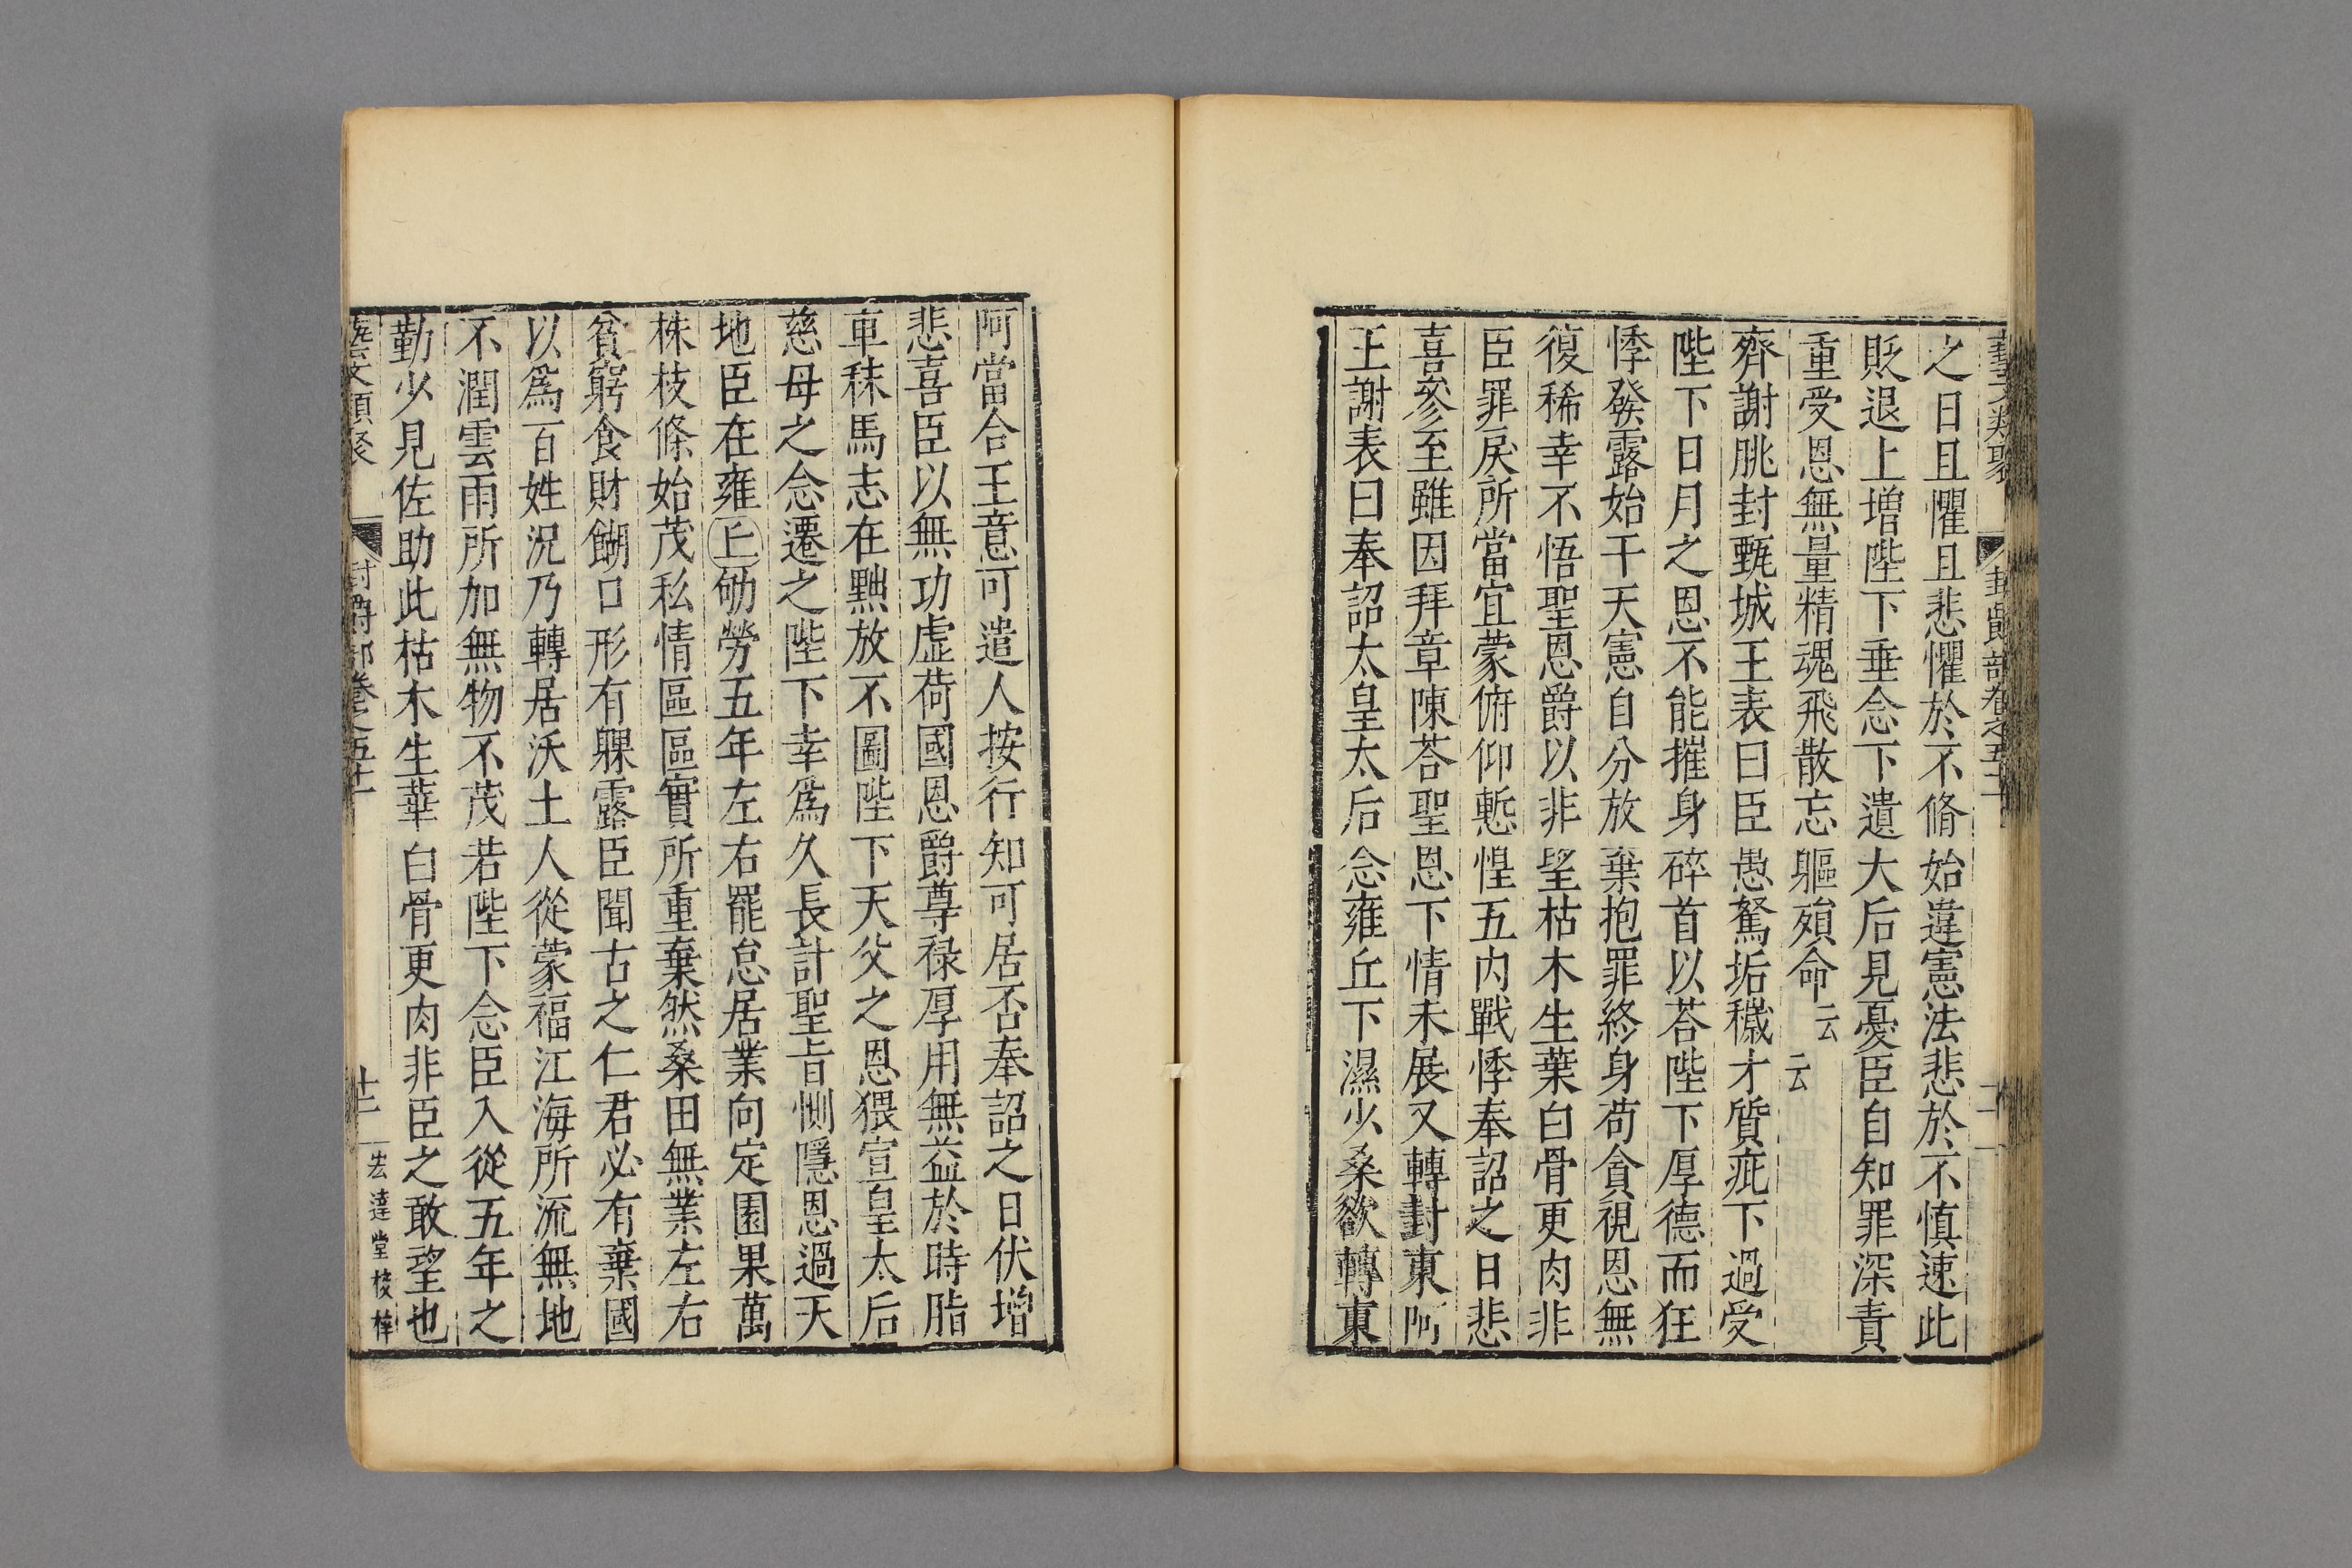 之日且懼且悲懼於不脩始違憲法悲於不慎速此
貶退上增陛下垂念下遺大后見憂臣自知罪深責
重受恩無量精魂飛散忘軀殞命云云
齊謝朓封甄城王表曰臣愚駑垢穢才質疵下過受
陛下日月之恩不能摧身碎首以荅陛下厚德而狂
悸發露始干天憲自分放棄抱罪終身苟貪視恩無
復稀幸不悟聖恩爵以非望枯木生葉白骨更肉非
臣罪戾所當宜蒙俯仰慙惶五內戰悸奉詔之日悲
喜參至雖因拜章陳荅聖恩下情未展又轉封東阿
王謝表曰奉詔太皇太后念雍丘下濕少桑欲轉東
阿當合王意可遣人按行知可居否奉詔之日伏增
悲喜臣以無功虛荷國恩爵尊祿厚用無益於時脂
車秣馬志在黜放不圖陛下天父之恩猥宣皇太后
慈母之念遷之陛下幸為久長計聖旨惻隱恩過天
地臣在雍丘劬勞五年左右罷怠居業向定園果萬
株枝條始茂私情區區實所重棄然桑田無業左右
貧窮食財餬口形有躶露臣聞古之仁君必有棄國
以為百姓況乃轉居沃土人從蒙福江海所流無地
不潤雲雨所加無物不茂若陛下念臣入從五年之
勤少見佐助此枯木生華白骨更肉非臣之敢望也